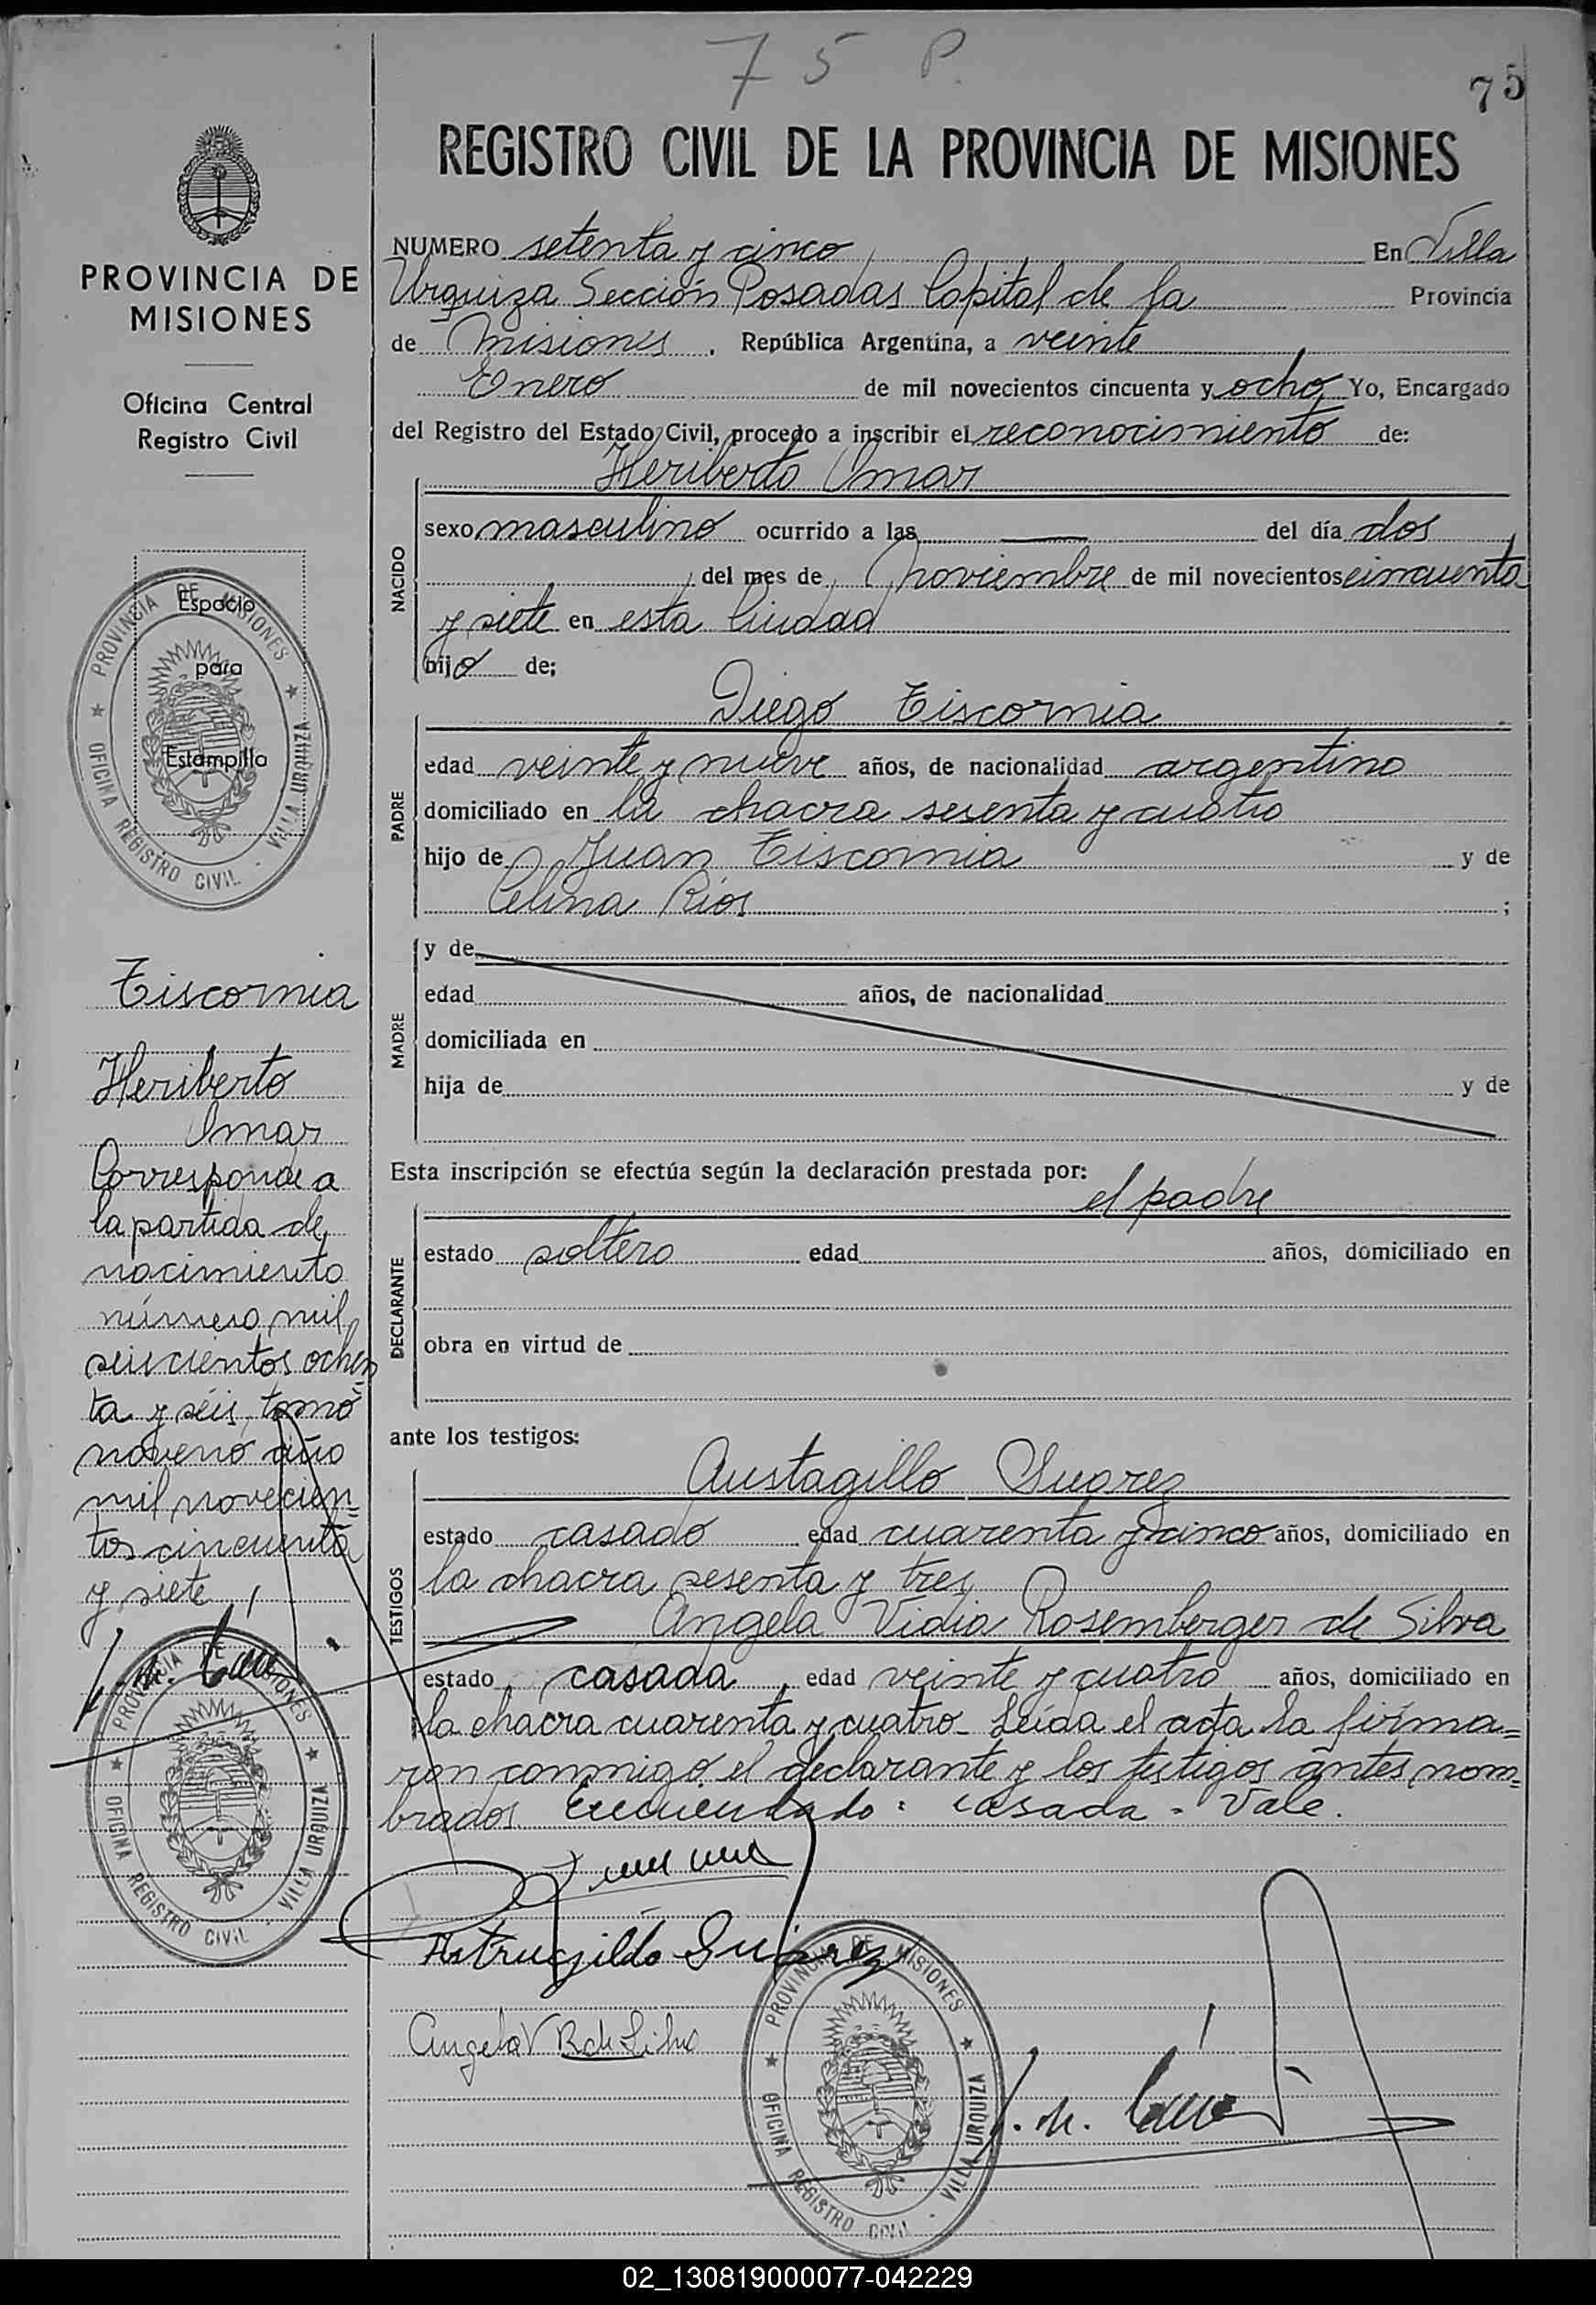 75 P.
75
REGISTRO CIVIL DE LA PROVINCIA DE MISIONES
PROVINCIA DE
MISIONES
Oficina Central
Registro Civil
Espacio
para
Estampilla
PROVINCIA DE MISIONES
OFICINA REGISTRO CIVIL - VILLA URQUIZA
Tiscornia
Heriberto
Omar
Corresponde a
la partida de
nacimiento
número mil
seiscientos ochen
ta y séis, tomo
noveno año
mil novecien
tos cincuenta
y siete
PROVINCIA DE MISIONES
OFICINA REGISTRO CIVIL - VILLA URQUIZA
NUMERO setenta y cinco En Villa
Urquiza Sección Posadas Capital de la Provincia
de Misiones. República Argentina, a veinte
Enero de mil novecientos cincuenta y ocho, Yo, Encargado
del Registro del Estado Civil, procedo a inscribir el reconocimiento de:
Heriberto Omar
NACIDO
sexo masculino ocurrido a las — del día dos
del mes de noviembre de mil novecientos cincuenta
y siete en esta Ciudad
hijo de;
Diego Tiscornia
PADRE
edad veinte y nueve años, de nacionalidad argentino
domiciliado en la chacra sesenta y cuatro
hijo de Juan Tiscornia y de
Celina Rios ;
MADRE
y de
edad años, de nacionalidad
domiciliada en
hija de y de
Esta inscripción se efectúa según la declaración prestada por:
el padre
DECLARANTE
estado soltero edad años, domiciliado en
obra en virtud de
ante los testigos:
Austagillo Suarez
TESTIGOS
estado casado edad cuarenta y cinco años, domiciliado en
la chacra sesenta y tres
Angela Vidia Rosemberger de Silva
estado casada, edad veinte y cuatro años, domiciliado en
la chacra cuarenta y cuatro_ Leída el acta la firma=
ron conmigo el declarante y los testigos antes nom=
brados. Enmendado: casada - Vale.
Astrugildo Suarez
Angela V R de Silva
PROVINCIA DE MISIONES
OFICINA REGISTRO CIVIL - VILLA URQUIZA
02_130819000077-042229